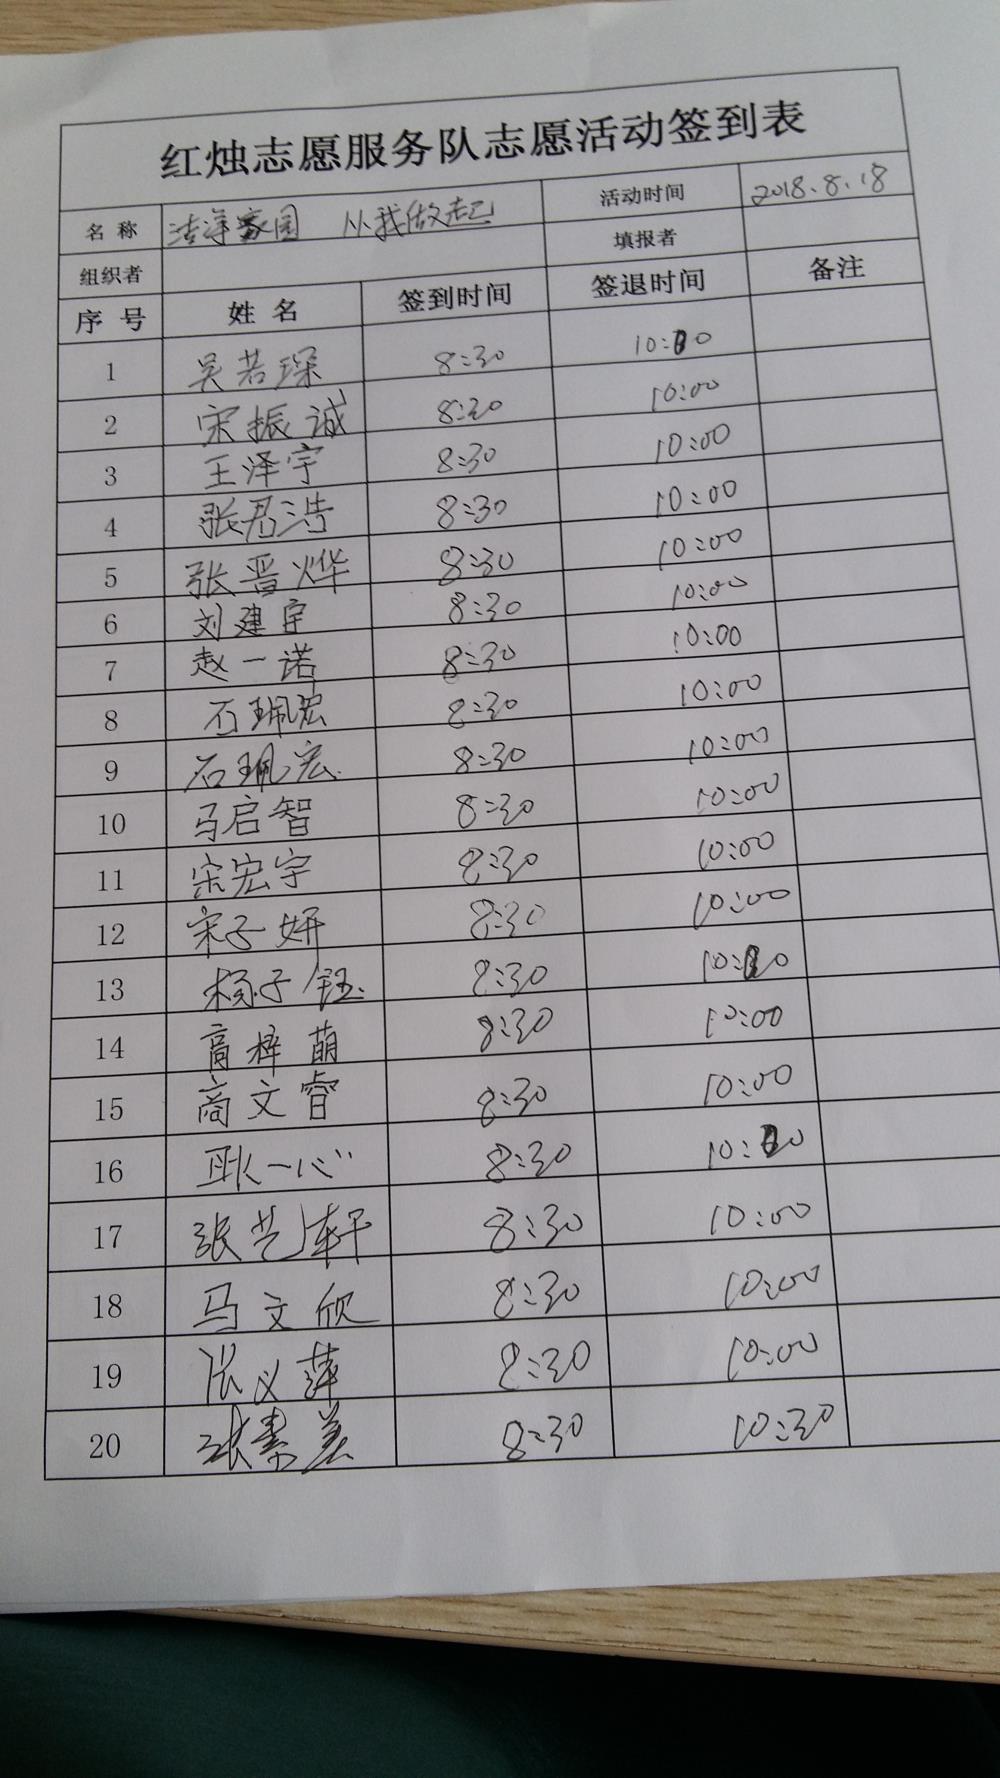 红烛志愿服务队志愿活动签到表
名称 洁净家园 从我做起 活动时间 2018.8.18
组织者 填报者
序号 姓名 签到时间 签退时间 备注
1 吴若琛 8:30 10:00
2 宋振诚 8:30 10:00
3 王泽宇 8:30 10:00
4 张君浩 8:30 10:00
5 张晋烨 8:30 10:00
6 刘建宇 8:30 10:00
7 赵一诺 8:30 10:00
8 石珮宏 8:30 10:00
9 石珮宏 8:30 10:00
10 马启智 8:30 10:00
11 宋宏宇 8:30 10:00
12 宋子妍 8:30 10:00
13 杨子钰 8:30 10:00
14 高梓萌 8:30 10:00
15 高文睿 8:30 10:00
16 耿一心 8:30 10:00
17 张艺轩 8:30 10:00
18 马文欣 8:30 10:00
19 张义萍 8:30 10:00
20 张素美 8:30 10:30